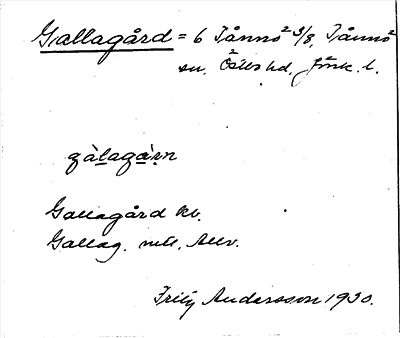 Gallagård = 6 Tånnö 2 3/8, Tånnö
sn, Östbo hd, Jönk. l.
gàlagàrn
Gallagård kv.
Gallag. mtl. Allv.
Fritz Andersson 1930.